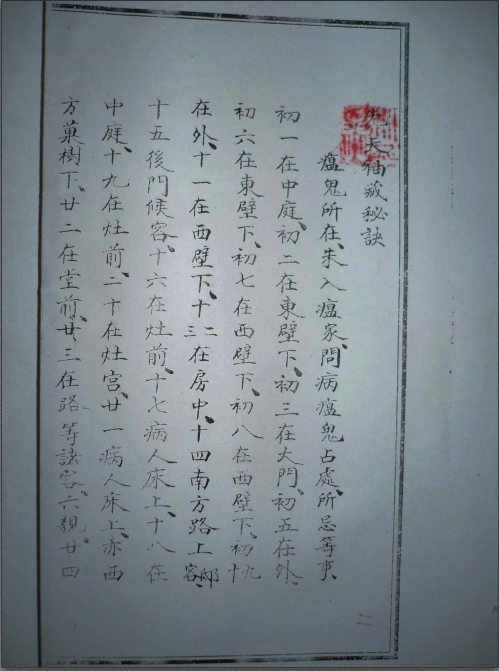 九天袖藏秘訣
瘟鬼所在、未入瘟家、問病瘟鬼占處、所忌等事、
初一在中庭、初二在東壁下、初三在大門、初五在外、
初六在東壁下、初七在西壁下、初八在西壁下、初九十
在外、十一在西壁下、十二三在房中、十四南方路上邸客、
十五後門候客、十六在灶前、十七病人床上、十八在
中庭、十九在灶前、二十在灶宫、廿一病人床上、亦西
方菓樹下、廿二在堂前、廿三在路等諸客、六親、廿四
二